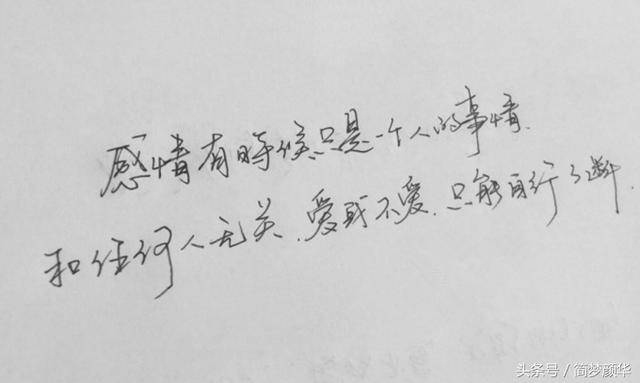 感情有時候只是一个人的事情.
和任何人无关.爱或不爱.只能自行了断.
头条号 / 简梦颜华